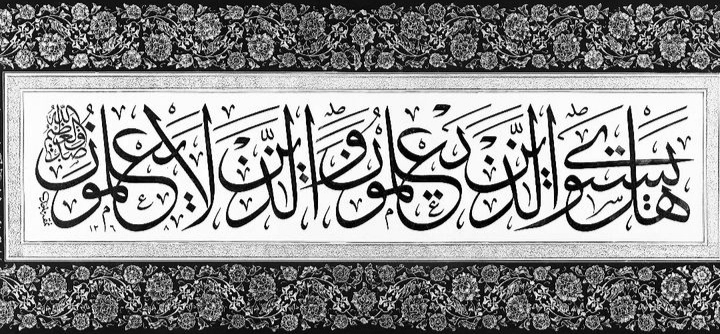 هل يستوي الذين يعلمون والذين لا يعلمون
صدق الله العظيم